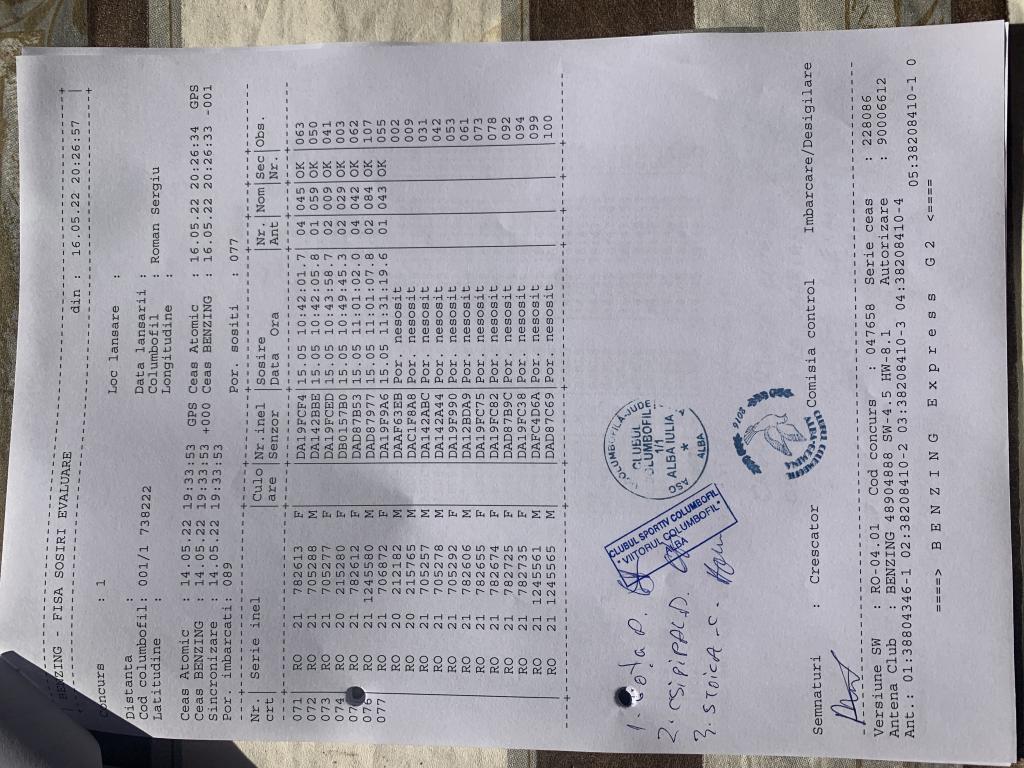 BENZING - FISA SOSIRI EVALUARE din : 16.05.22 20:26:57 |
Concurs : 1 Loc lansare :
Distanta : Data lansarii :
Cod columbofil: 001/1 738222 Columbofil : Roman Sergiu
Latitudine : Longitudine :
Ceas Atomic : 14.05.22 19:33:53 GPS Ceas Atomic : 16.05.22 20:26:34 GPS
Ceas BENZING : 14.05.22 19:33:53 +000 Ceas BENZING : 16.05.22 20:26:33 -001
Sincronizare : 14.05.22 19:33:53
Por. imbarcati: 089 Por. sositi : 077
Nr. | Serie inel | Culo | Nr.inel | Sosire | Nr. | Nom | Sec | Obs.
crt | are | Senzor | Data Ora | Ant | Nr.
071 RO 21 782613 F DA19FCF4 15.05 10:42:01.7 04 045 OK 063
072 RO 21 705288 M DA142BBE 15.05 10:42:05.8 01 059 OK 050
073 RO 21 705277 F DA19FCED 15.05 10:43:58.7 02 009 OK 041
074 RO 20 215280 F DB0157B0 15.05 10:49:45.3 02 029 OK 003
RO 21 782612 F DAD87B53 15.05 11:01:02.0 04 042 OK 062
076 RO 21 1245580 M DAD87977 15.05 11:01:07.8 02 084 OK 107
077 RO 21 706872 F DA19F9A6 15.05 11:31:19.6 01 043 OK 055
RO 20 212182 M DAAF63EB Por. nesosit 002
RO 20 215765 M DAC1F8A8 Por. nesosit 009
RO 21 705257 M DA142ABC Por. nesosit 031
RO 21 705278 M DA142A44 Por. nesosit 042
RO 21 705292 F DA19F990 Por. nesosit 053
RO 21 782606 M DA12BDA9 Por. nesosit 061
RO 21 782655 F DA19FC75 Por. nesosit 073
RO 21 782674 F DA19FC82 Por. nesosit 078
RO 21 782725 F DAD87B9C Por. nesosit 092
RO 21 782735 F DA19FC38 Por. nesosit 094
RO 21 1245561 M DAFC4D6A Por. nesosit 099
RO 21 1245565 M DAD87C69 Por. nesosit 100
1.
2.
3. STOICA
CLUBUL SPORTIV COLUMBOFIL
"VIITORUL COLUMBOFIL"
ALBA
CLUBUL
COLUMBOFIL
11
ALBA IULIA
ALBA
Semnaturi : Crescator Comisia control Imbarcare/Desigilare
Versiune SW : RO-04.01 Cod concurs : 047658 Serie ceas : 228086
Antena Club : BENZING 48904888 SW-4.5 HW-8.1 Autorizare : 90006612
Ant.: 01:38804346-1 02:38208410-2 03:38208410-3 04:38208410-4 05:38208410-1 0
====> B E N Z I N G E x p r e s s G 2 <====